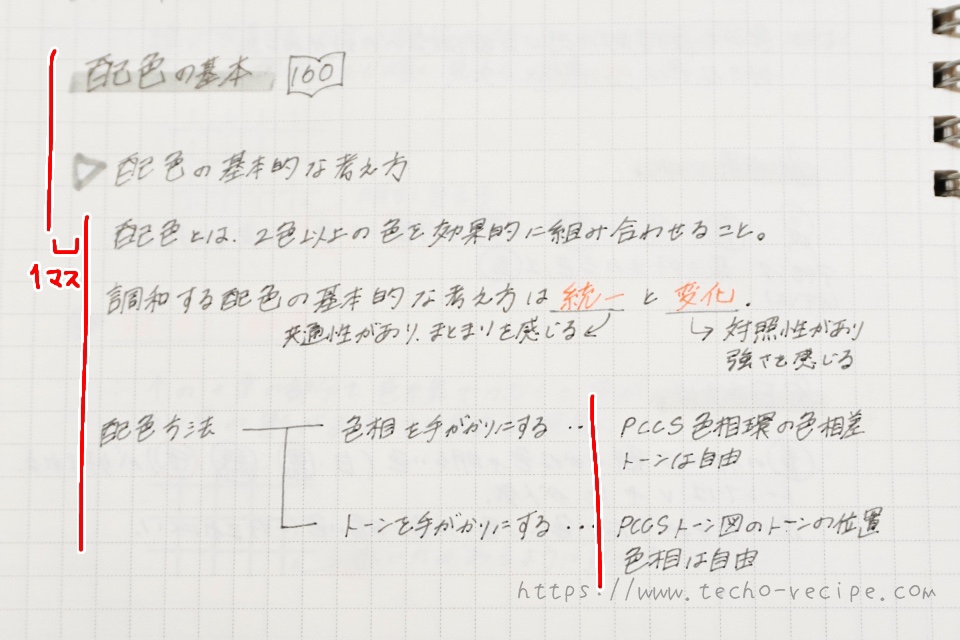 配色の基本 160
配色の基本的な考え方
配色とは、2色以上の色を効果的に組み合わせること。
1マス
調和する配色の基本的な考え方は 統一 と 変化.
共通性があり、まとまりを感じる
対照性があり
強さを感じる
配色方法
色相を手がかりにする ‥ PCCS色相環の色相差
トーンは自由
トーンを手がかりにする ‥‥ PCCSトーン図のトーンの位置
色相は自由
https://www.techo-recipe.com